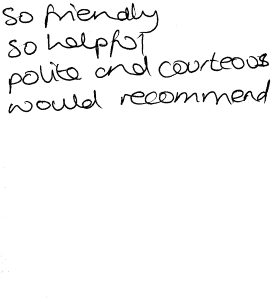 so friendly
so helpful
polite and courteous
would recommend